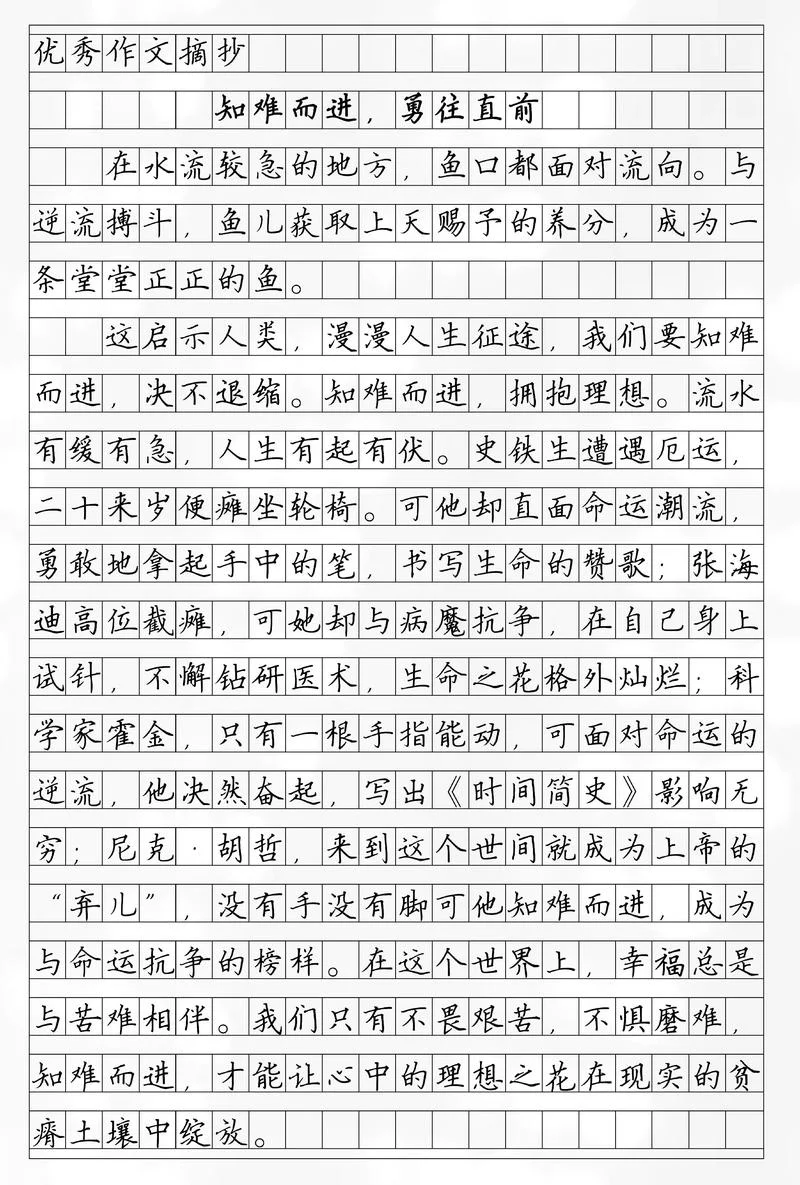 优秀作文摘抄
知难而进，勇往直前
在水流较急的地方，鱼口都面对流向。与
逆流搏斗，鱼儿获取上天赐予的养分，成为一
条堂堂正正的鱼。
这启示人类，漫漫人生征途，我们要知难
而进，决不退缩。知难而进，拥抱理想。流水
有缓有急，人生有起有伏。史铁生遭遇厄运，
二十来岁便瘫坐轮椅。可他却直面命运潮流，
勇敢地拿起手中的笔，书写生命的赞歌；张海
迪高位截瘫，可她却与病魔抗争，在自己身上
试针，不懈钻研医术，生命之花格外灿烂；科
学家霍金，只有一根手指能动，可面对命运的
逆流，他决然奋起，写出《时间简史》影响无
穷；尼克·胡哲，来到这个世间就成为上帝的
“弃儿”，没有手没有脚可他知难而进，成为
与命运抗争的榜样。在这个世界上，幸福总是
与苦难相伴。我们只有不畏艰苦，不惧磨难，
知难而进，才能让心中的理想之花在现实的贫
瘠土壤中绽放。